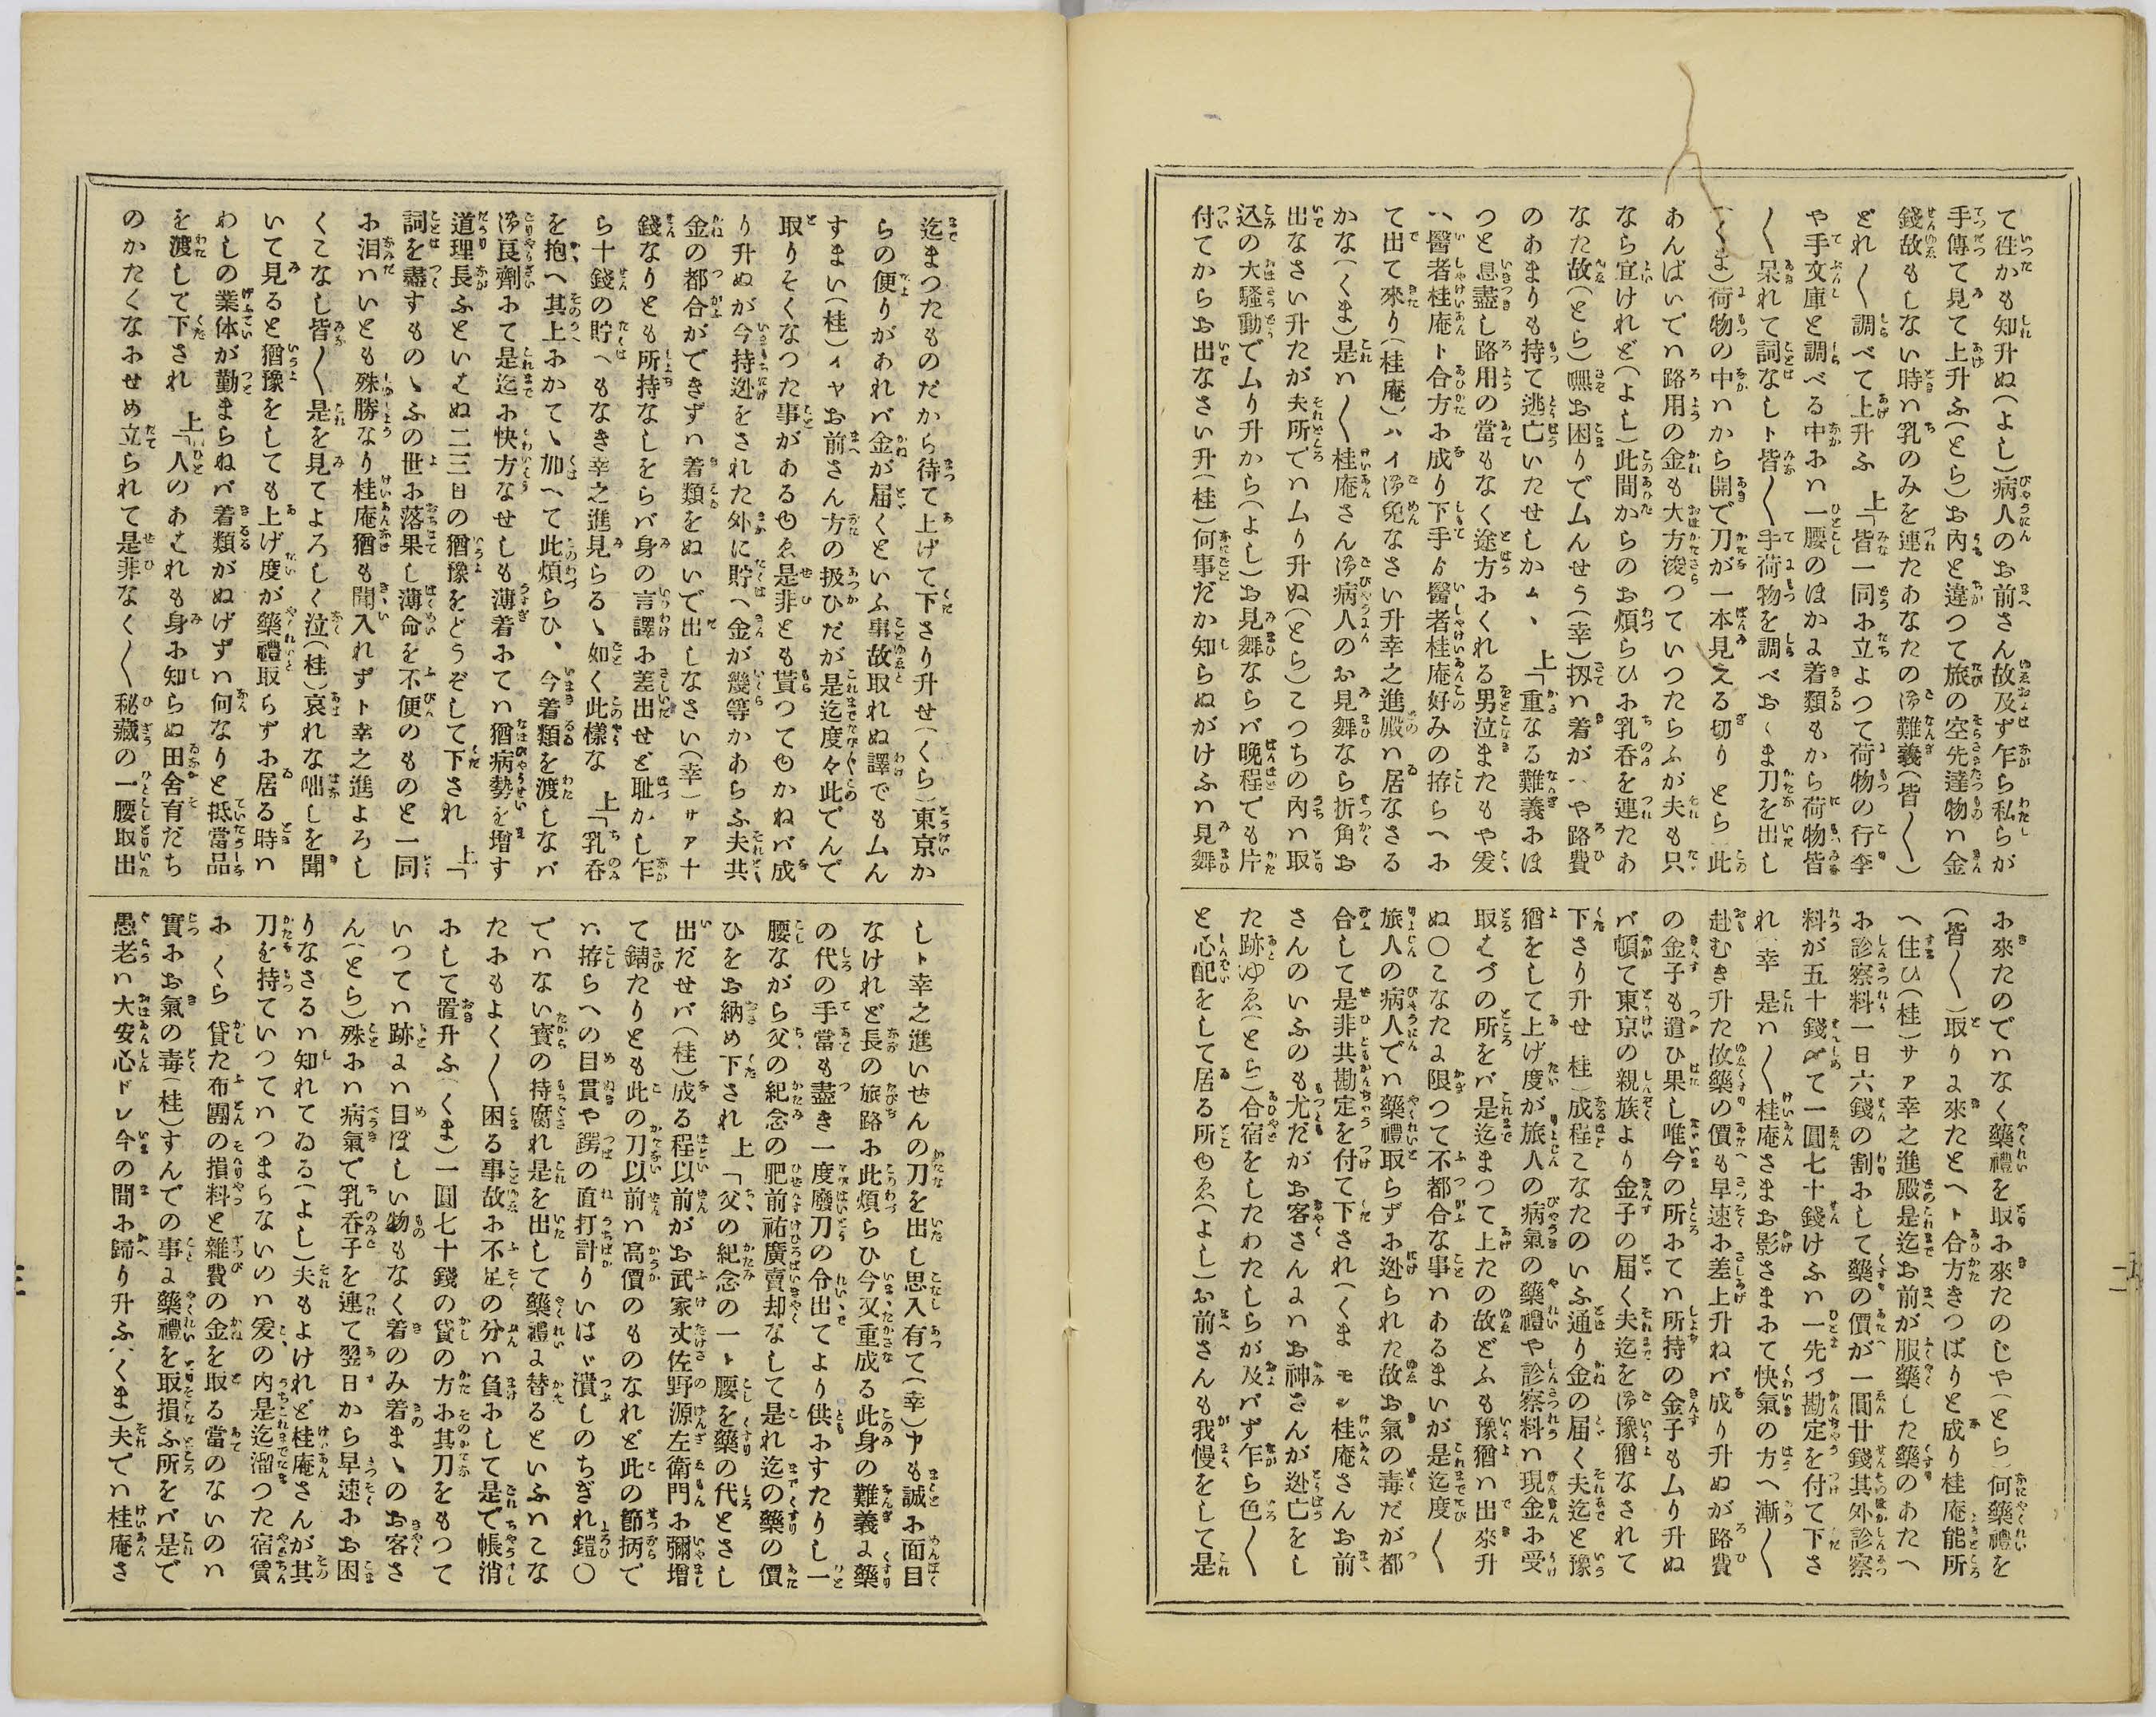 て徃かも知升ぬ(よし)病人のお前さん故及ず乍ら私らが
手傳て見て上升ふ(とら)お内と違つて旅の空先達物ハ金
錢故もしない時ハ乳のみを連たあなたの御難義(皆〳〵)
どれ〳〵調べて上升ふ 上「皆一同お立よつて荷物の行李
や手文庫と調べる中おハ一腰のほかよ着類もから荷物皆
〳〵呆れて詞なしト皆〳〵手荷物を調べおくま刀を出し
(くま)荷物の中ハから開で刀が一本見える切り とら 此
あんばいでハ路用の金も大方浚つていつたらふが夫も只
なら宜けれど(よし)此間からのお煩らひお乳呑を連たあ
なた故(とら)嘸お困りでムんせう(幸)扨ハ着がへや路費
のあまりも持て逃亡いたせしかム、 上「重なる難義おほ
つと息盡し路用の當もなく途方おくれる男泣またもや爰
ヘ醫者桂庵ト合方お成り下手ゟ醫者桂庵好みの拵らへお
て出て來り(桂庵)ハイ御免なさい升幸之進殿ハ居なさる
かな(くま)是ハ〳〵桂庵さん御病人のお見舞なら折角お
出なさい升たが夫所でハムり升ぬ(とら)こつちの内ハ取
込の大騷動でムり升から(よし)お見舞ならバ晩程でも片
付てからお出なさい升(桂)何事だか知らぬがけふハ見舞
お來たのでハなく藥禮を取お來たのじや(とら)何藥禮を
(皆〳〵)取りよ來たとヘト合方きつぱりと成り桂庵能所
ヘ住ひ(桂)サァ幸之進殿是迄お前が服藥した藥のあたへ
お診察料一日六錢の割おして藥の價が一圓廿錢其外診察
料が五十錢〆て一圓七十錢けふハ一先づ勘定を付て下さ
れ 幸 是ハ〳〵桂庵さまお影さまおて快氣の方へ漸〳〵
赴むき升た故藥の價も早速お差上升ねバ成り升ぬが路費
の金子も遣ひ果し唯今の所おてハ所持の金子もムり升ぬ
バ頓て東京の親族より金子の届く夫迄を御豫猶なされて
下さり升せ 桂 成程こなたのいふ通り金の届く夫迄と豫
猶をして上げ度が旅人の病氣の藥禮や診察料ハ現金お受
取とづの所をバ是迄まつて上たの故どふも豫猶ハ出來升
ぬ○こなたよ限つて不都合な事ハあるまいが是迄度〳〵
旅人の病人でハ藥禮取らずお迯られた故お氣の毒だが都
合して是非共勘定を付て下され(くま モシ桂庵さんお前
さんのいふのも尤だがお客さんよハお神さんが迯亡をし
た跡ゆゑ(とら)合宿をしたわたしらが及バず乍ら色〳〵
と心配をして居る所ゆゑ(よし)お前さんも我慢をして是
迄まつたものだから待て上げて下さり升せ(くら)東京か
らの便りがあれバ金が届くといふ事故取れぬ譯でもムん
すまい(桂)イヤお前さん方の扱ひだが是迄度々此でんで
取りそくなつた事があるゆゑ是非とも貰つてゆかねバ成
り升ぬが今持迯をされた外に貯ヘ金が幾等かあらふ夫共
金の都合ができずハ着類をぬいで出しなさい(幸)サァ十
錢なりとも所持なしをらバ身の言譯お差出せど耻かし乍
ら十錢の貯へもなき幸之進見らるゝ如く此樣な 上「乳呑
を抱へ其上おかてゝ加へて此煩らひ、今着類を渡しなバ
御良劑おて是迄お快方なせしも薄着おてハ猶病勢を增す
道理長ふといはぬ二三日の猶豫をどうぞして下され 上「
詞を盡すものゝふの世お落果し薄命を不便のものと一同
お泪ハいとも殊勝なり桂庵猶も聞入れずト幸之進よろし
くこなし皆〳〵是を見てよろしく泣(桂)哀れな咄しを聞
いて見ると猶豫をしても上げ度が藥禮取らずお居る時ハ
わしの業体が勤まらねバ着類がぬげずハ何なりと抵當品
を渡して下され 上「人のあはれも身お知らぬ田舍育だち
のかたくなおせめ立られて是非なく〳〵秘藏の一腰取出
しト幸之進いぜんの刀を出し思入有て(幸)ァも誠お面目
なけれど長の旅路お此煩らひ今又重成る此身の難義よ藥
の代の手當も盡き一度廢刀の令出てより供おすたりし一
腰ながら父の紀念の肥前祐廣賣却なして是れ迄の藥の價
ひをお納め下され 上「父の紀念の一ト腰を藥の代とさし
出だせバ(桂)成る程以前がお武家丈佐野源左衛門お彌增
て錆たりとも此の刀以前ハ高價のものなれど此の節柄で
ハ拵らへの目貫や鍔の直打計りいはゞ潰しのちぎれ鎧○
でハない寳の持腐れ是を出して藥禮よ替るといふハこな
たおもよく〳〵困る事故お不足の分ハ負おして是で帳消
おして置升ふ(くま)一圓七十錢の貸の方お其刀をもつて
いつてハ跡よハ目ぼしい物もなく着のみ着まゝのお客さ
ん(とら)殊おハ病氣で乳呑子を連て翌日から早速お困
りなさるハ知れてゐる(よし)夫もよけれど桂庵さんが其
刀を持ていつてハつまらないのハ爰の内是迄溜つた宿賃
お くら 貸た布團の損料と雜費の金を取る當のないのハ
實おお氣の毒(桂)すんでの事よ藥禮を取損ふ所をバ是で
愚老ハ大安心ドレ今の間お歸り升ふ(くま)夫でハ桂庵さ